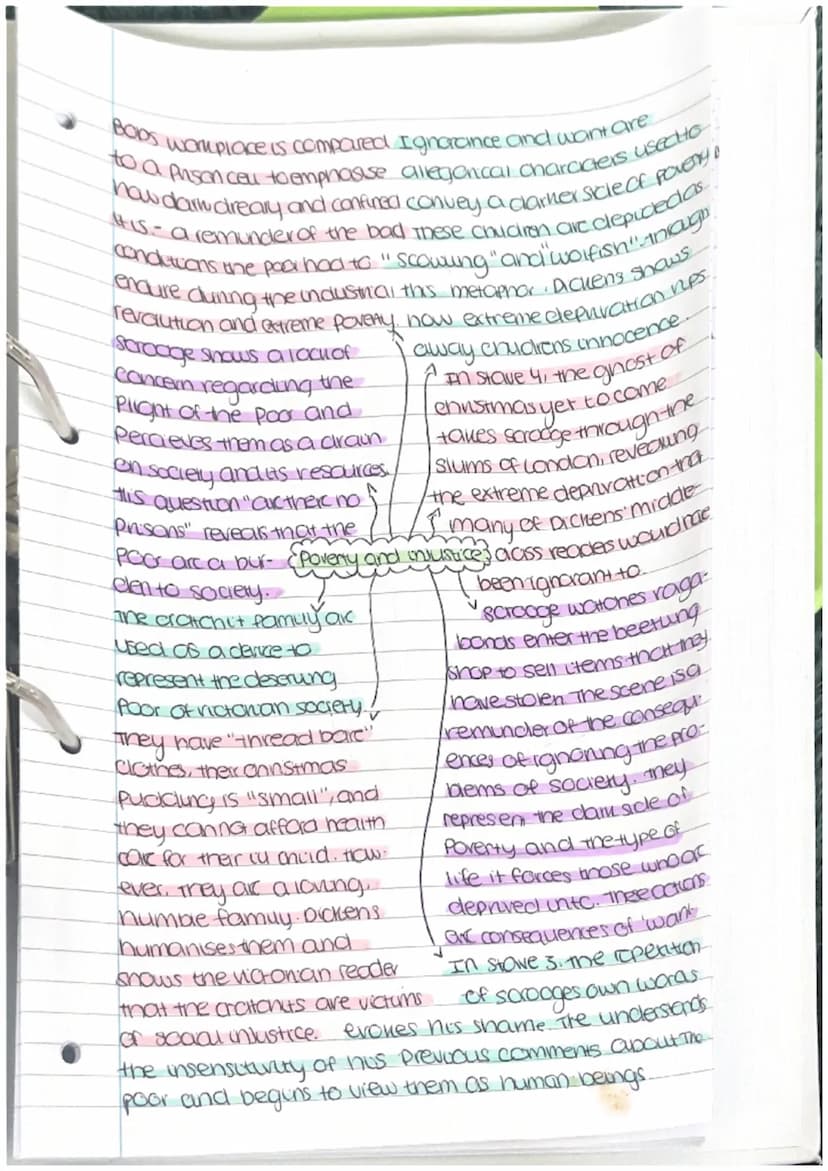 Bobs workplace is compared
to a prison cell to emphasise
how dark dreary and confined
it is - a reminder of the bad
conditions the poor had to
endure during the industrial
revolution and extreme poverty.
Ignorance and want are
allegorical characters used to
convey a darker side of poverty
These children are depicted as
"scowling" and "wolfish". Through
this metaphor, Dickens shows
how extreme deprivation rips
away childrens innocence.
Scrooge shows a lack of
concern regarding the
plight of the poor and
percieves them as a drain
on society and its resources.
His question "are there no
prisons" reveals that the
poor are a bur-
den to society.
In stave 4, the ghost of
christmas yet to come
takes scrooge through the
slums of London, revealing
the extreme deprivation that
many of Dickens' middle-
class readers would have
been ignorant to.
Poverty and injustice
The cratchit family are
used as a device to
represent the deserving
poor of victorian society.
They have "thread bare"
clothes, their christmas
pudding is "small", and
they cannot afford health
care for their ill child. How-
ever, they are a loving,
humble family. Dickens
humanises them and
shows the victorian reader
that the cratchits are victims
of social injustice.
Scrooge watches vaga-
bonds enter the beetling
shop to sell items that they
have stolen. The scene is a
reminder of the consequ-
ences of ignoring the pro-
blems of society. They
represent the dark side of
poverty and the type of
life it forces those who are
deprived into. These actions
are consequences of 'want'
In stave 3, the repetition
of scrooges own words
evokes his shame. The understands
the insensitivity of his previous comments about the
poor and begins to view them as human beings